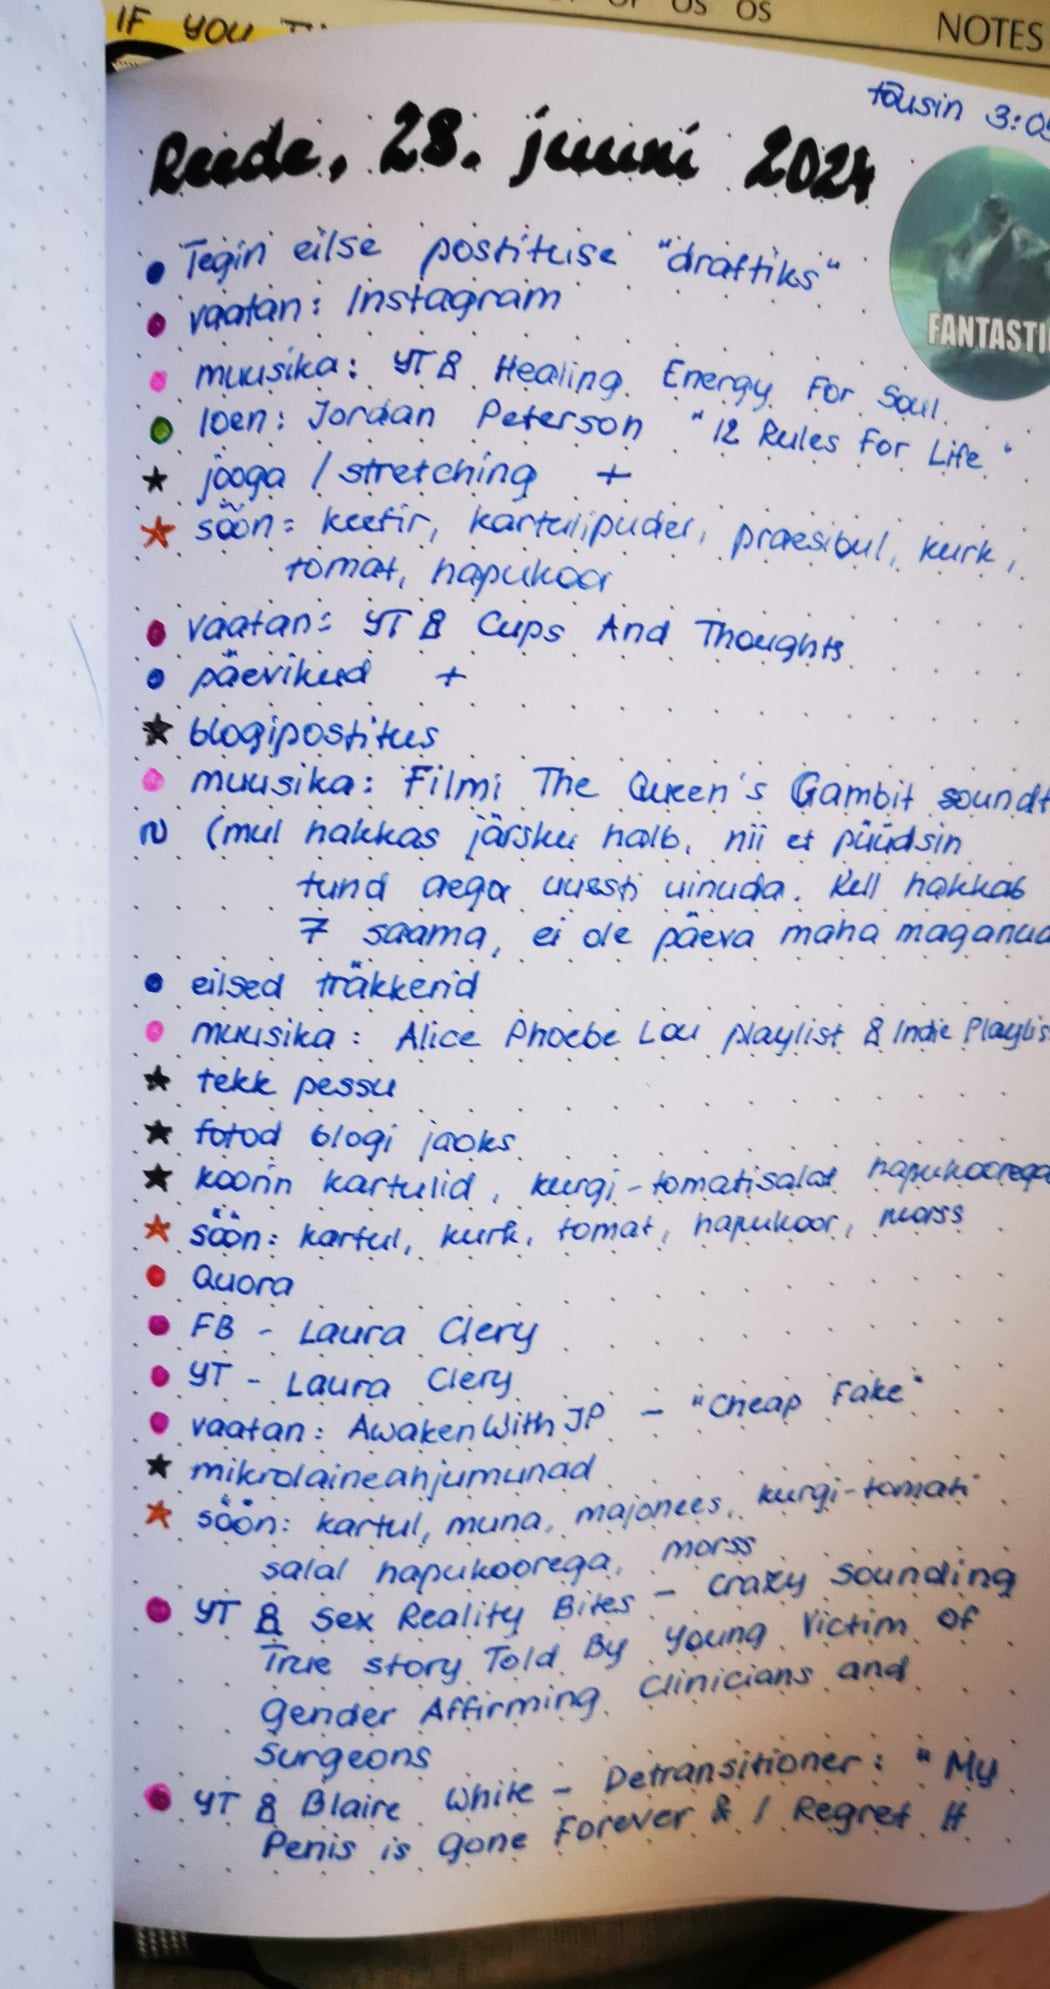 IF YOU
OS OS
NOTES
tõusin 3:05
Reede, 28. juuni 2024
FANTASTI
Tegin eilse postituse "draftiks"
vaatan: Instagram
muusika: YT & Healing Energy For Soul
loen: Jordan Peterson "12 Rules For Life"
jooga / stretching +
söön: keefir, kartulipuder, praesibul, kurk,
tomat, hapukoor
vaatan: YT & Cups And Thoughts
päevikud +
blogipostitus
muusika: Filmi The Queen's Gambit soundt
(mul hakkas järsku halb, nii et püüdsin
tund aega uuesti uinuda. Kell hakkab
7 saama, ei ole päeva maha maganud
eilsed träkkerid
muusika: Alice Phoebe Lou playlist & Indie Playlis
tekk pessu
fotod blogi jaoks
koorin kartulid, kurgi-tomatisalat hapukoorega
söön: kartul, kurk, tomat, hapukoor, morss
Quora
FB - Laura Clery
YT - Laura Clery
vaatan: AwakenWithJP - "Cheap Fake"
mikrolaineahjumunad
söön: kartul, muna, majonees, kurgi-tomati
salat hapukoorega, morss
YT & Sex Reality Bites - Crazy Sounding
True story Told By Young Victim Of
Gender Affirming Clinicians and
Surgeons
YT & Blaire White - Detransitioner: "My
Penis is Gone Forever & I Regret It